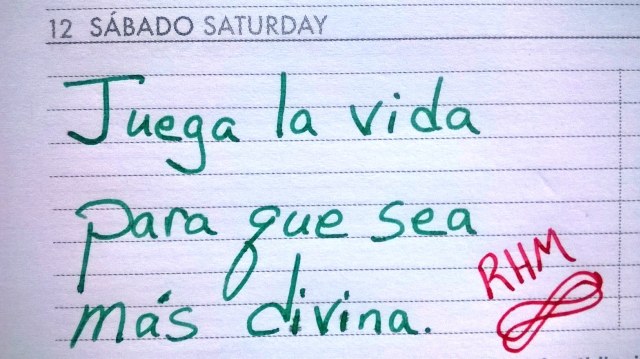 12 SÁBADO SATURDAY
Juega la vida
para que sea
más divina.
RHM